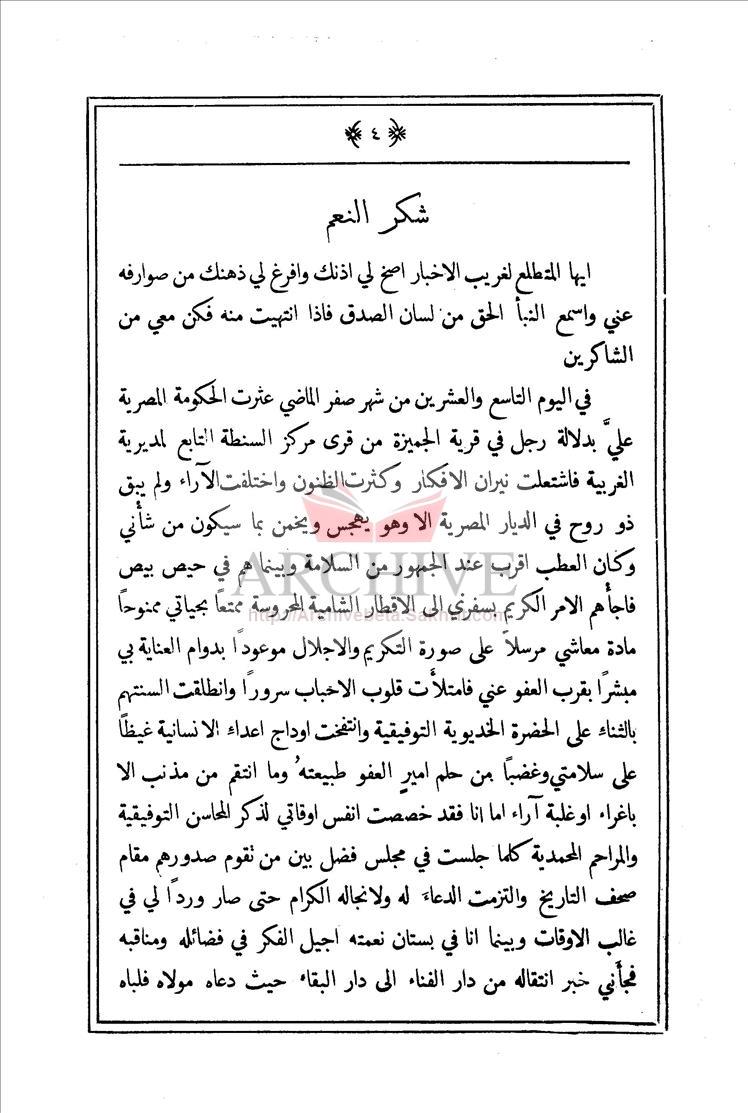 ﴿ ٤ ﴾
شكر النعم
ايها المتطلع لغريب الاخبار اصخ لي اذنك وافرغ لي ذهنك من صوارفه
عني واسمع النبأ الحق من لسان الصدق فاذا انتهيت منه فكن معي من
الشاكرين
في اليوم التاسع والعشرين من شهر صفر الماضي عثرت الحكومة المصرية
عليَّ بدلالة رجل في قرية الجميزة من قرى مركز السنطة التابع لمديرية
الغربية فاشتعلت نيران الافكار وكثرت الظنون واختلفت الآراء ولم يبق
ذو روح في الديار المصرية الا وهو يهجس ويخمن بما سيكون من شأني
وكان العطب اقرب عند الجمهور من السلامة وبينما هم في حيص بيص
ARCHIVE
فاجأهم الامر الكريم بسفري الى الاقطار الشامية المحروسة ممتعاً بحياتي ممنوحاً
http://Archivebeta.Sakhrit.com
مادة معاشي مرسلاً على صورة التكريم والاجلال موعوداً بدوام العناية بي
مبشرًا بقرب العفو عني فامتلأت قلوب الاخباب سرورًا وانطلقت السنتهم
بالثناء على الحضرة الخديوية التوفيقية وانتفخت اوداج اعداء الانسانية غيظًا
على سلامتي وغضبًا من حلم اميرٍ العفو طبيعته وما انتقم من مذنب الا
باغراء او غلبة آراء اما انا فقد خصصت انفس اوقاتي لذكر المحاسن التوفيقية
والمراحم المحمدية كلما جلست في مجلس فضل بين من تقوم صدورهم مقام
صحف التاريخ والتزمت الدعاء له ولانجاله الكرام حتى صار وردًا لي في
غالب الاوقات وبينما انا في بستان نعمته اجيل الفكر في فضائله ومناقبه
فجأني خبر انتقاله من دار الفناء الى دار البقاء حيث دعاه مولاه فلباه